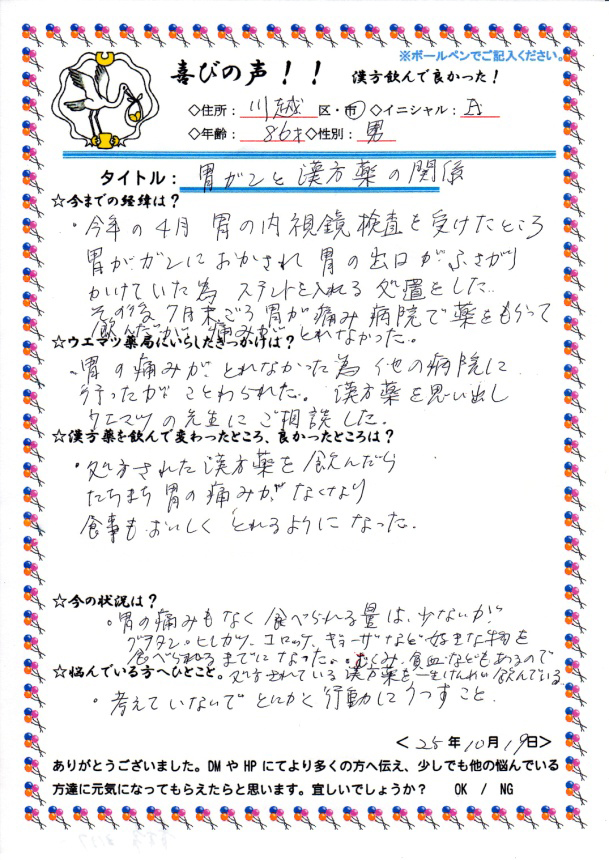 ※ボールペンでご記入ください。
喜びの声！！ 漢方飲んで良かった！
◇住所：川越 区・市 ◇イニシャル：
◇年齢：86才 ◇性別：男
タイトル：胃ガンと漢方薬の関係
☆今までの経緯は？
・今年の4月 胃の内視鏡検査を受けたところ
胃がガンにおかされ 胃の出口がふさがり
かけていた為 ステントを入れる処置をした.
その後7月末ごろ胃が痛み病院で薬をもらって
飲んだが、痛みがとれなかった。
☆ウエマツ薬局にいらしたきっかけは？
・胃の痛みがとれなかった為 他の病院に
行ったが ことわられた。漢方薬を思い出し
ウエマツの先生にご相談した.
☆漢方薬を飲んで変わったところ、良かったところは？
・処方された漢方薬を飲んだら
たちまち胃の痛みがなくなり
食事もおいしくとれるようになった.
☆今の状況は？
・胃の痛みもなく食べられる量は、少ないが
ヒレカツ、コロッケ、ギョーザなど好きな物を
食べられるまでになった。むくみ、貧血などもあるので
処方されている漢方薬を一生けんめい飲んでいる
☆悩んでいる方へひとこと。
・考えていないでとにかく行動にうつすこと.
＜25年10月19日＞
ありがとうございました。DMやHPにてより多くの方へ伝え、少しでも他の悩んでいる
方達に元気になってもらえたらと思います。宜しいでしょうか？ OK / NG